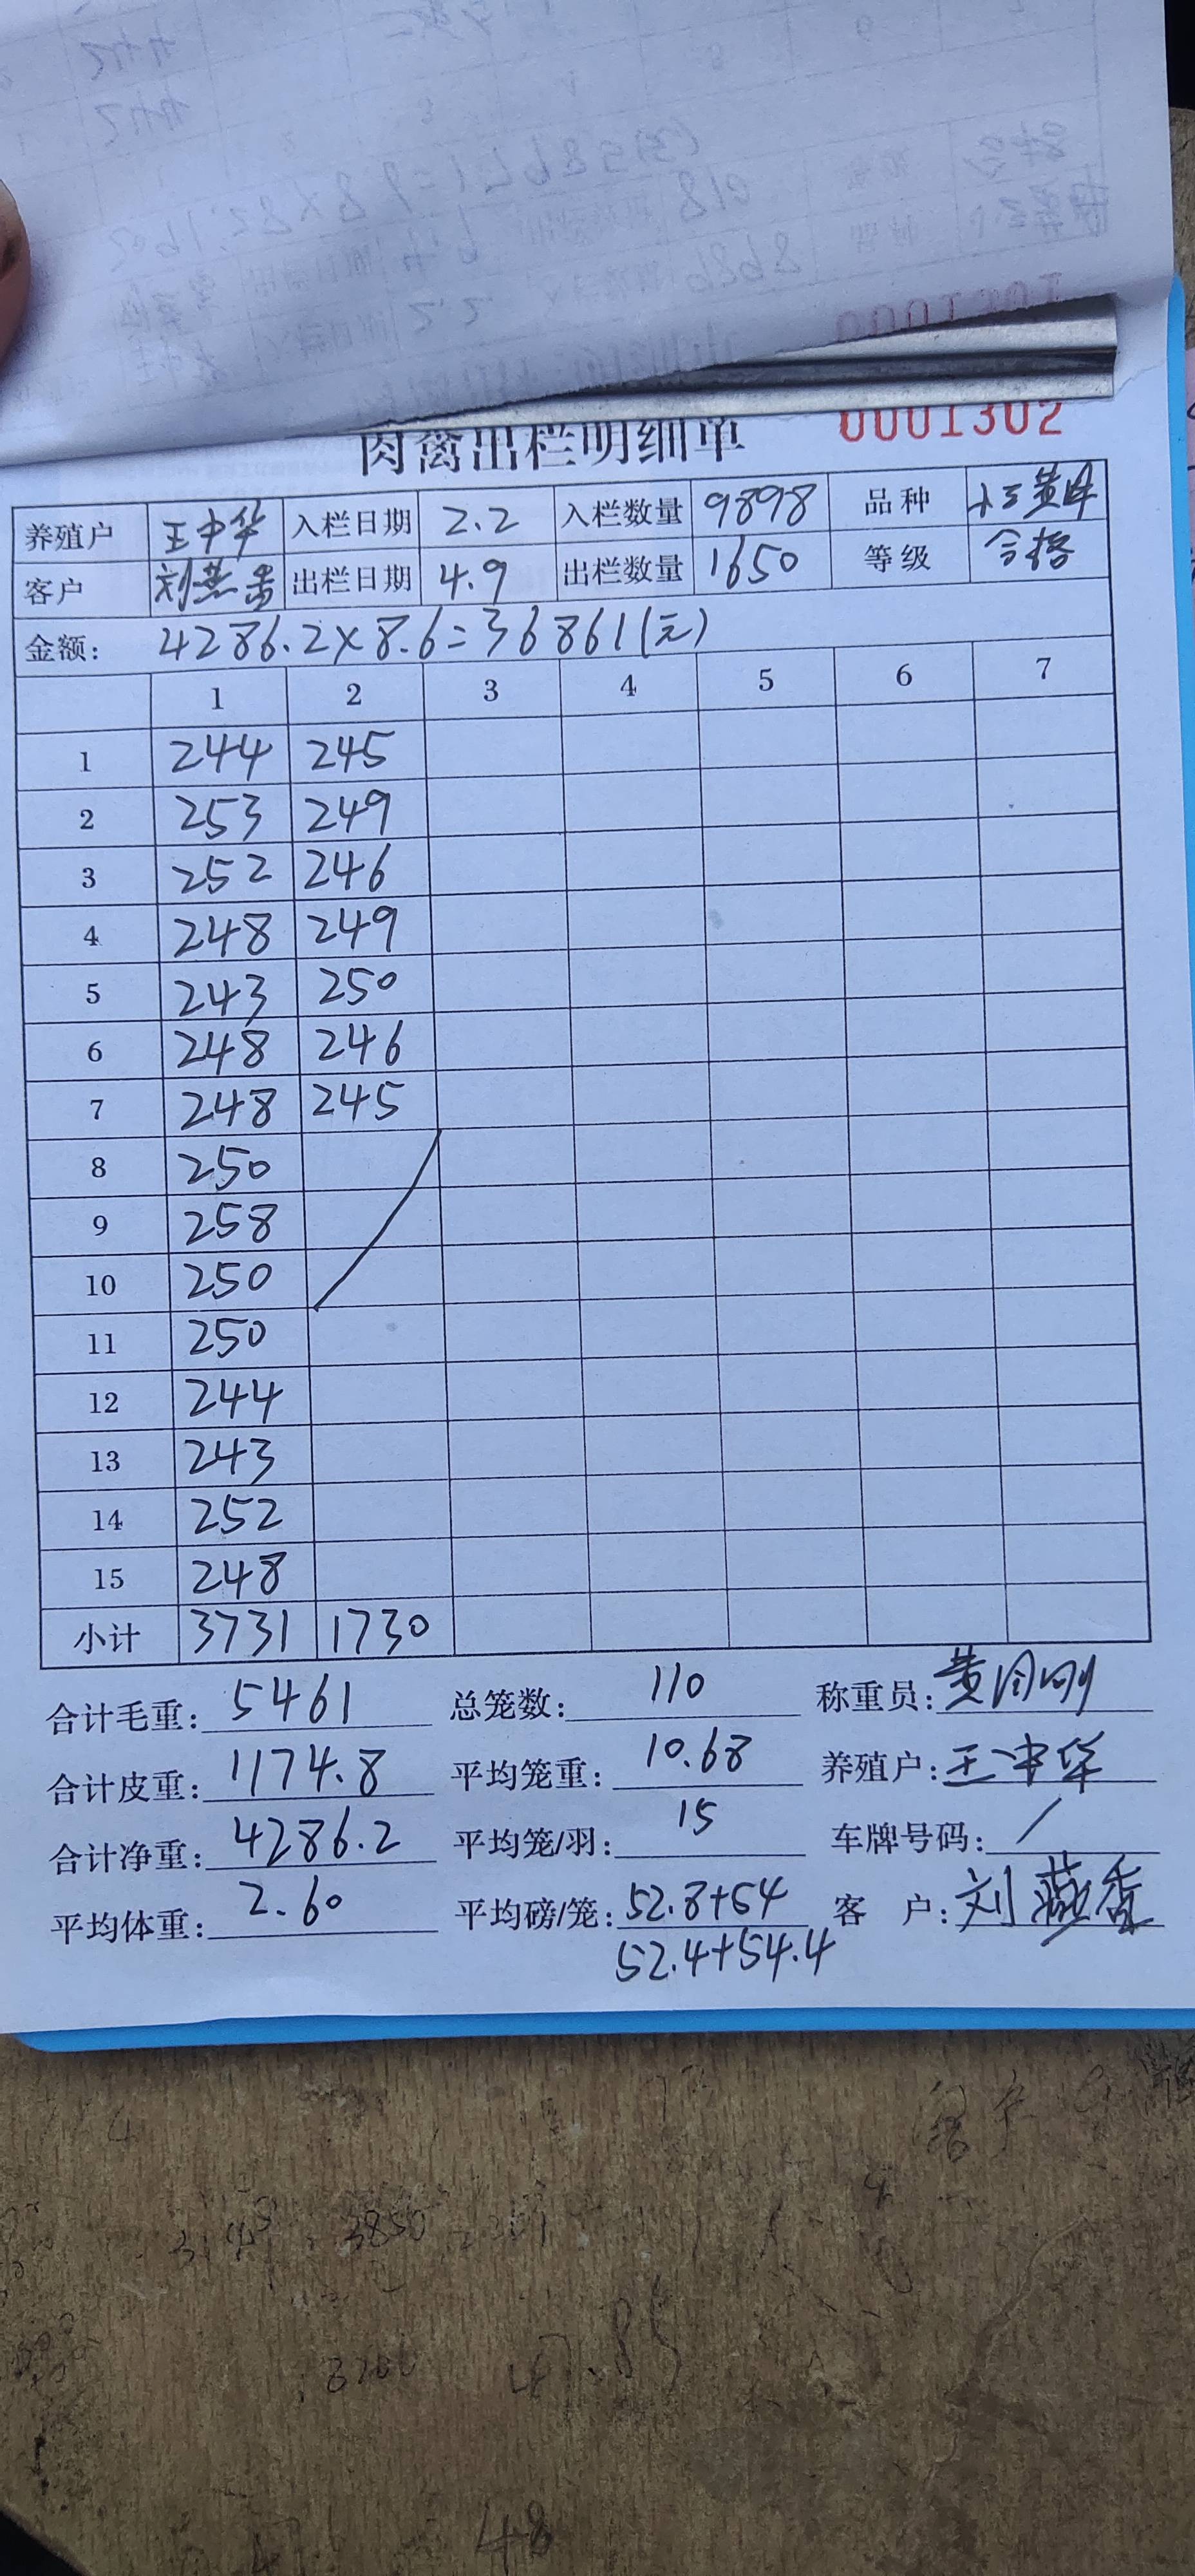 肉禽出栏明细单 0001302
养殖户 王中华 入栏日期 2.2 入栏数量 9898 品种
客户 刘燕香 出栏日期 4.9 出栏数量 1650 等级 合格
金额: 4286.2×8.6=36861(元)
1 2 3 4 5 6 7
1 244 245
2 253 249
3 252 246
4 248 249
5 243 250
6 248 246
7 248 245
8 250
9 258
10 250
11 250
12 244
13 243
14 252
15 248
小计 3731 1730
合计毛重: 5461 总笼数: 110 称重员:
合计皮重: 1174.8 平均笼重: 10.68 养殖户: 王中华
合计净重: 4286.2 平均笼/羽: 15 车牌号码: /
平均体重: 2.60 平均磅/笼: 52.8+54 客 户: 刘燕香
52.4+54.4